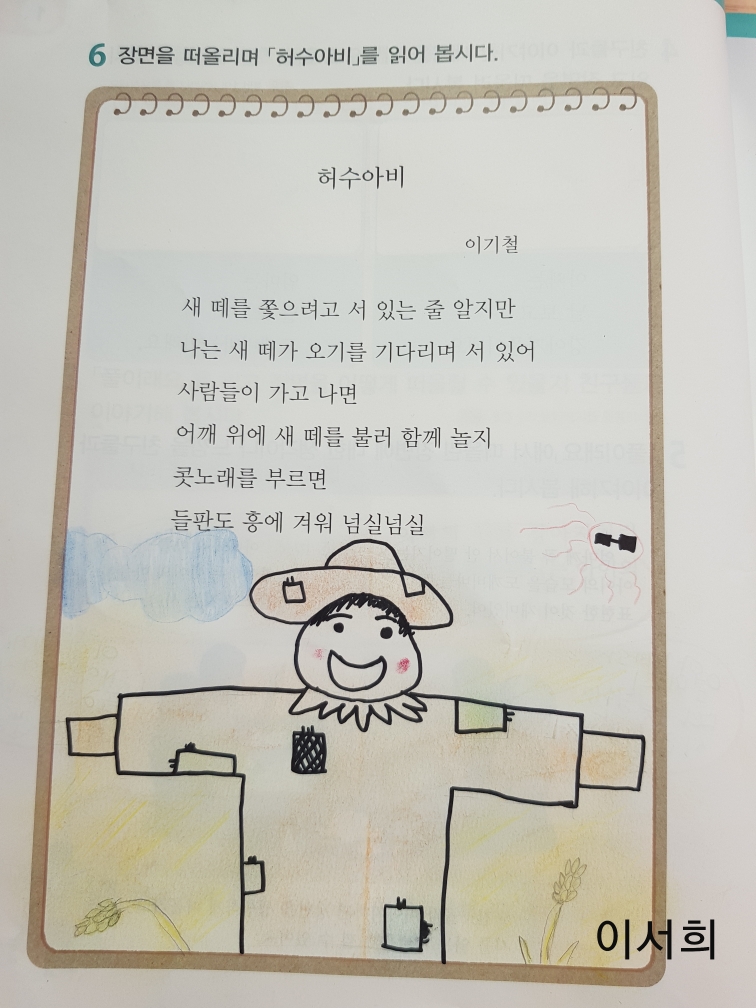 6 장면을 떠올리며 「허수아비」를 읽어 봅시다.
허수아비
이기철
새 떼를 쫓으려고 서 있는 줄 알지만
나는 새 떼가 오기를 기다리며 서 있어
사람들이 가고 나면
어깨 위에 새 떼를 불러 함께 놀지
콧노래를 부르면
들판도 흥에 겨워 넘실넘실
이서희